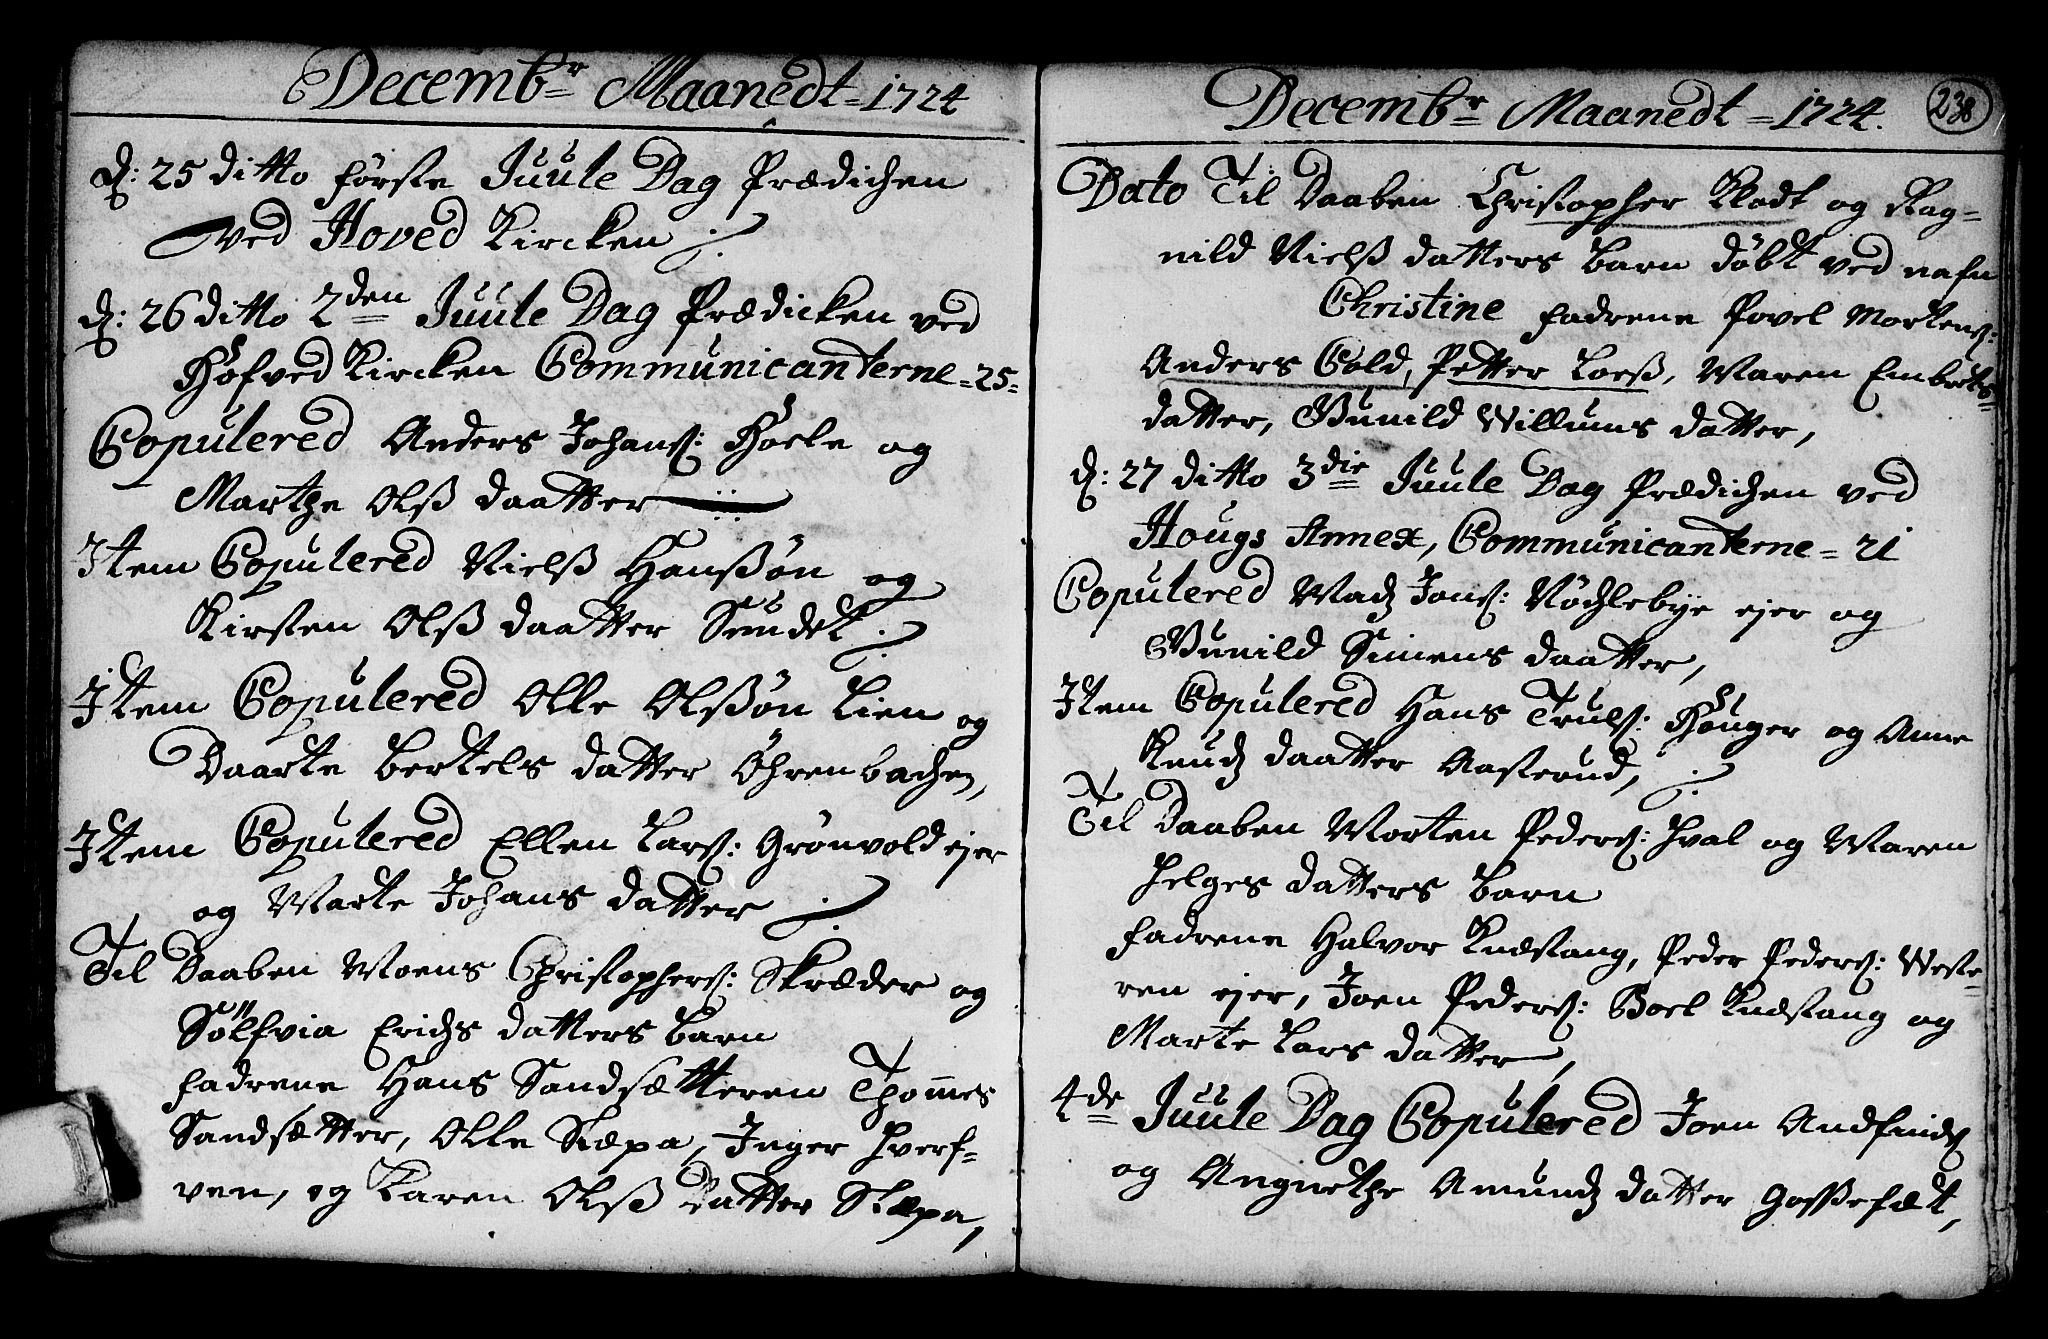 Decembr Maanedt = 1724
d: 25 ditto första Juule Dag Prædichen
ved Hoved Kircken
d: 26 ditto 2den Juule Dag Prædicken ved
Hofved Kircken Communicanterne = 25 =
Copulered Anders Johans: Hoele og
Marthe Olß daatter
Item Copulered Nielß Hanßøn og
Kirsten Olß daatter Sundet
Item Copulered Olle Olßøn Lien og
Daarte Bertels datter Øhrenbachen,
Item Copulered Ellen Lars: Grønvold ejer
og Marte Johans datter
Til Daaben Moens Christophers: Skræder og
Sølfvia Erichs datters barn
fadrene Hans Sandsætteren Thomes
Sandsætter, Olle Skæpa, Inger Hverf=
ven, og Karen Olß Datter Skæpa,
Decembr Maanedt = 1724.
238
Dato Til Daaben Christopher Kladt og Rag=
nild Nielß datters barn döbt ved nafn
Christine fadrene Povel Mortens:
Anders Cold, Petter Loeß, Maren Embrets=
datter, Gunild Willums datter,
d: 27 ditto 3die Juule Dag Prædichen ved
Hougs Annex, Communicanterne = 21
Copulered Mads Jons: Nøchlebye ejer og
Gunild Simens daatter,
Item Copulered Hans Truls: Houger og Anne
Knuds daatter Aasterud,
Til Daaben Morten Peders: Hval og Maren
Helges datters barn
fadrene Halvor Knæstang, Peder Peders: Weste=
ren ejer, Joen Peders: Boel Knæstang og
Marte Lars datter,
4de Juule Dag Copulered Joen Andfinds
og Angnethe Amunds datter Gosßefæt,